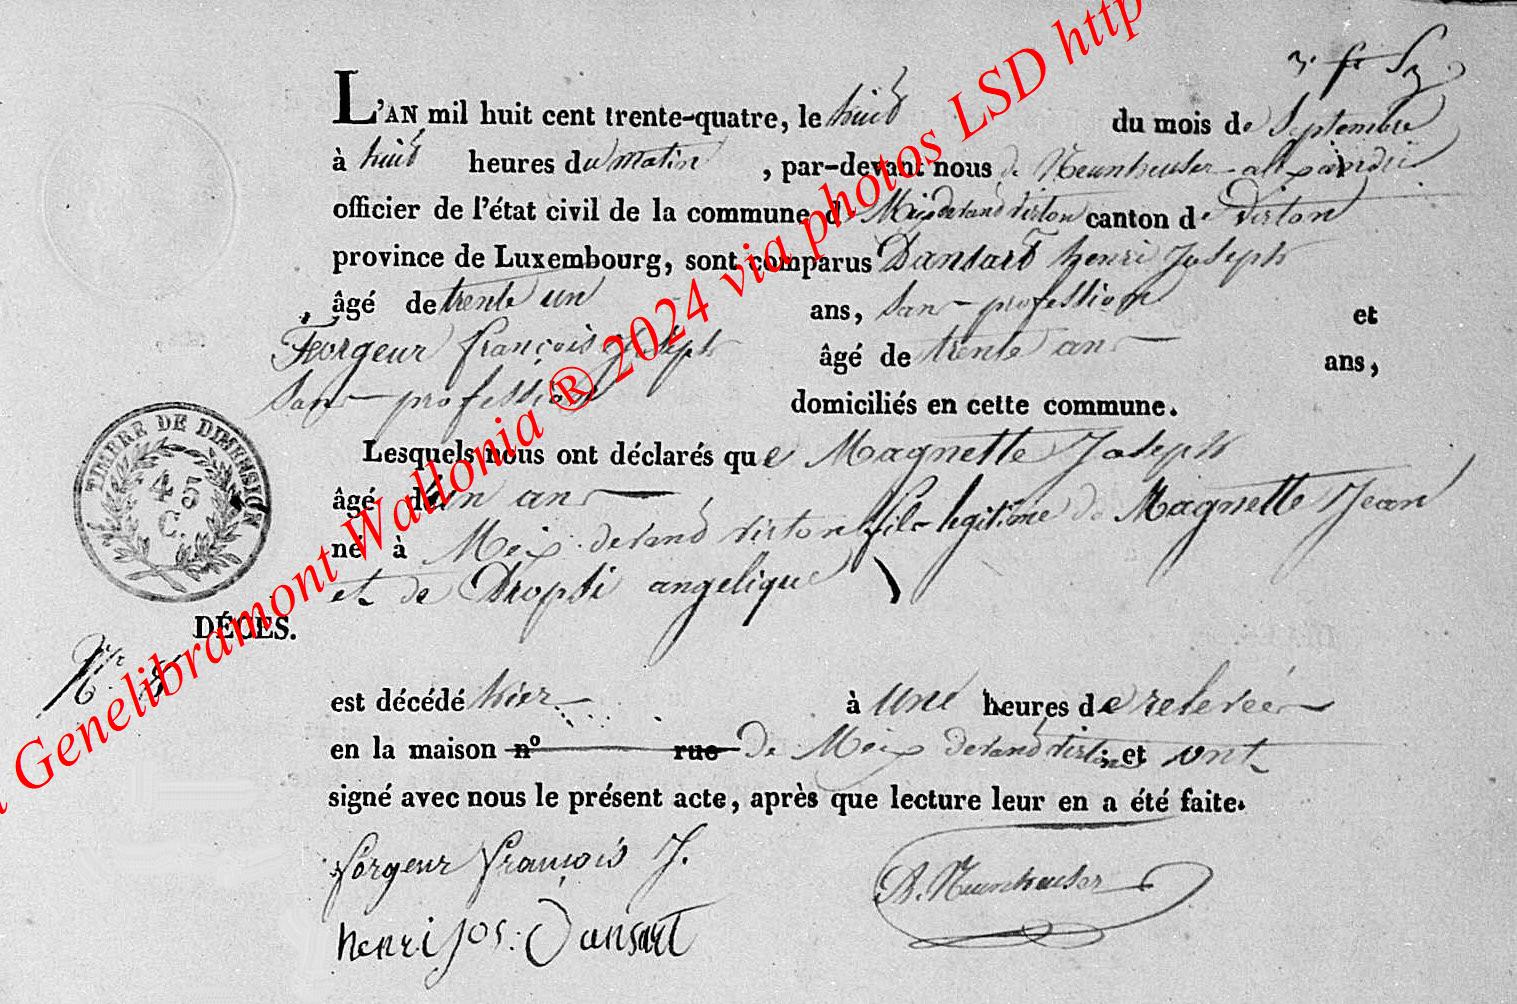 L'AN mil huit cent trente-quatre, le huit du mois de Septembre
à huit heures du matin, par-devant nous de Neunheuser alexandre
officier de l'état civil de la commune de Meix devand virton canton de virton
province de Luxembourg, sont comparus Dansart henri Joseph
âgé de trente un ans, San profession et
Forgeur françois Joseph âgé de trente an ans,
San profession domiciliés en cette commune.
Lesquels nous ont déclarés que Magnette Joseph
âgé d'un an
né à Meix devand virton fils legitime de Magnette Jean
et de Dropsi angelique
TIMBRE DE DIMENSION
45
C.
DÉCES.
est décédé hier à une heures de relevée
en la maison n° rue de Meix devand virton; et ont
signé avec nous le présent acte, après que lecture leur en a été faite.
forgeur françois J.
A. Neunheuser
henri Jos: Dansart
Genelibramont Wallonia ® 2024 via photos LSD http